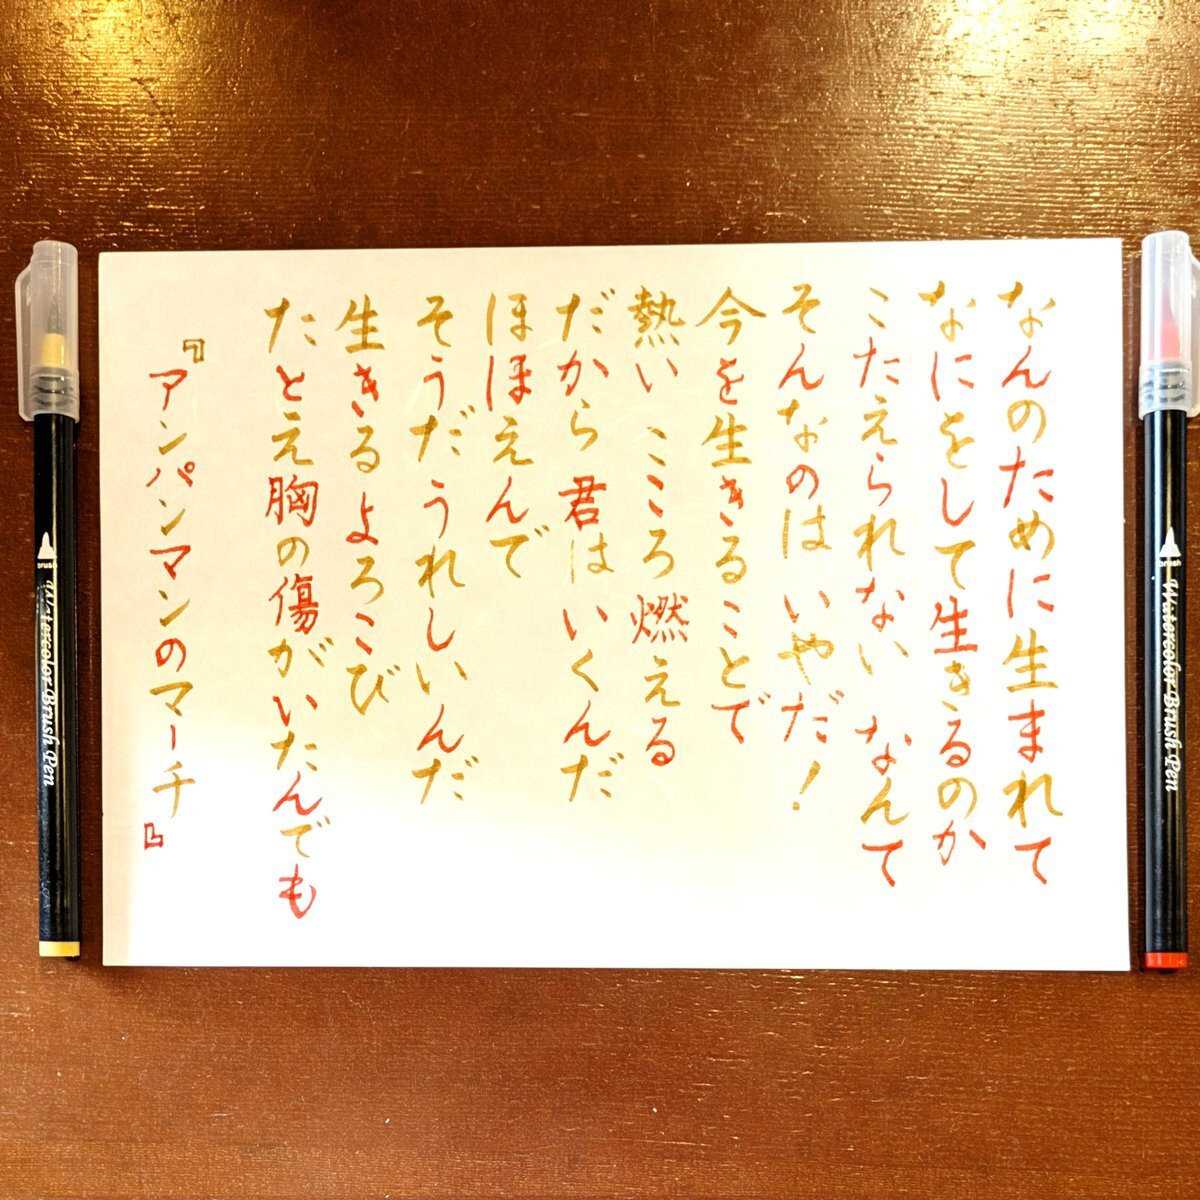 なんのために生まれて
なにをして生きるのか
こたえられない なんて
そんなのは いやだ!
今を生きることで
熱い こころ 燃える
だから 君は いくんだ
ほほえんで
そうだ うれしいんだ
生きる よろこび
たとえ胸の傷がいたんでも
『アンパンマンのマーチ』
brush
Watercolor Brush Pen
brush
Watercolor Brush Pen